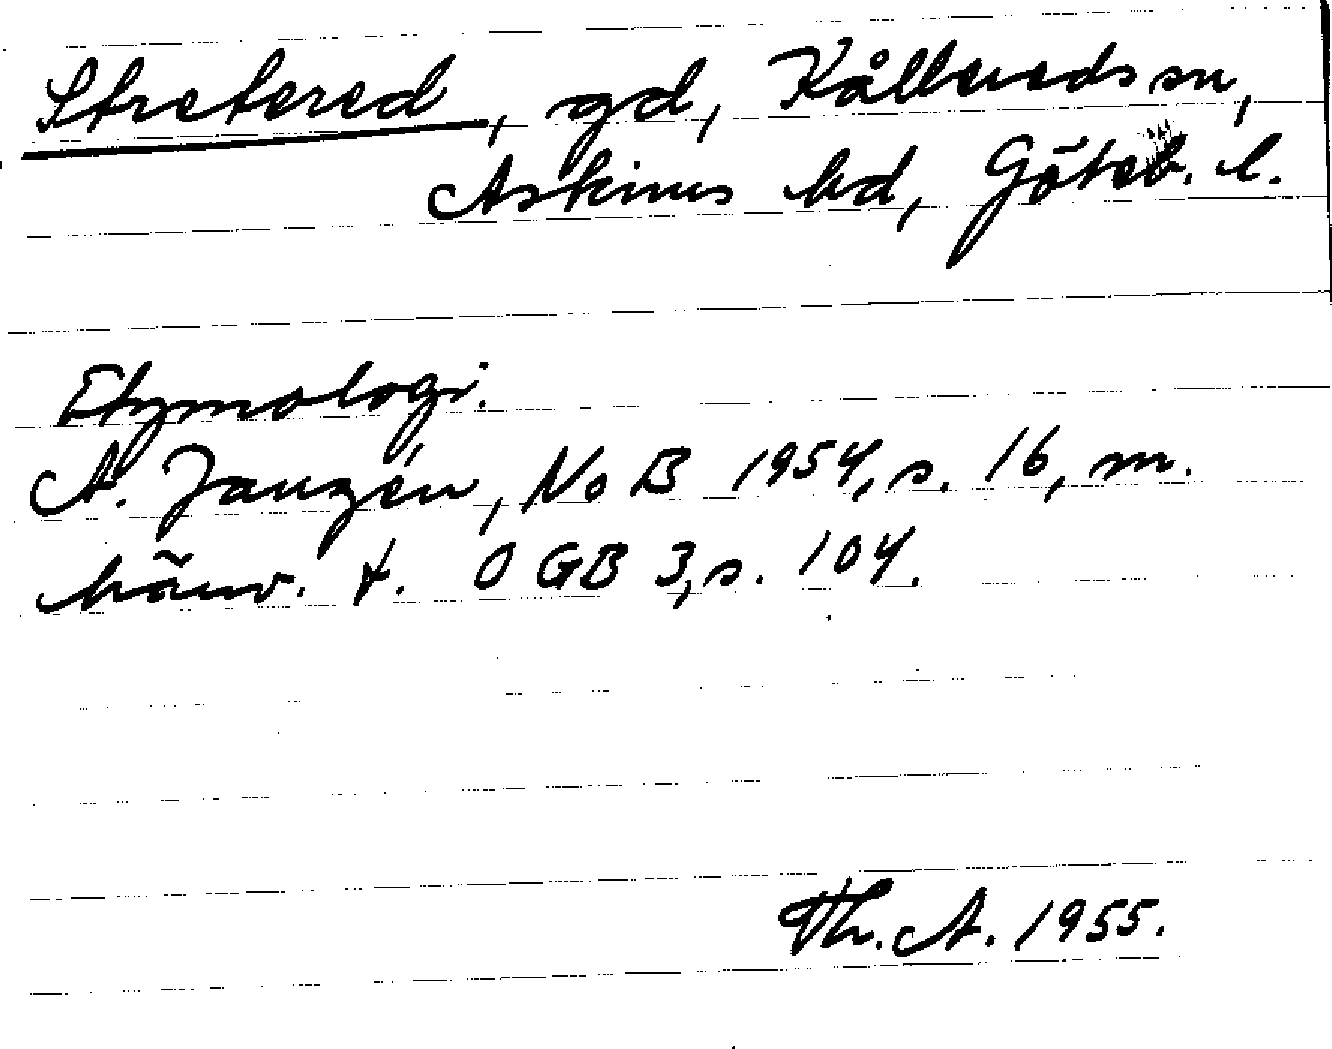 Stretered, gd, Kållereds sn,
Askims hd, Göteb. l.
Etymologi.
A. Janzén, NoB 1954, s. 16, m.
hänv. t. OGB 3, s. 104.
Th. A. 1955.